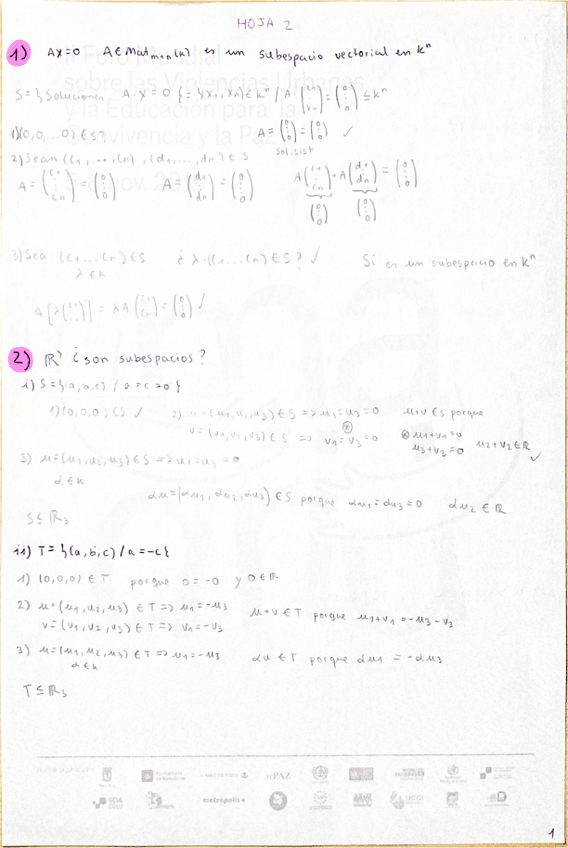 HOJA 2
1) AX=0 A∈Mat m×n (K) es un subespacio vectorial en Kⁿ
sobre las Violencias Urbanas
S={Soluciones A·X=0}={(x₁, xₙ)∈Kⁿ / A·(x₁ ⋮ xₙ)=(0 ⋮ 0)} ≤ Kⁿ
y la Educación para la
Convivencia y la Paz
1)(0,0,...0)∈S? A=(0 ⋮ 0)=(0 ⋮ 0) ✓
sol. sist
2) Sean (c₁,...,cₙ), (d₁,...,dₙ) ∈ S
A=(c₁ ⋮ cₙ)=(0 ⋮ 0) A=(d₁ ⋮ dₙ)=(0 ⋮ 0) A(c₁ ⋮ cₙ)+A(d₁ ⋮ dₙ)=(0 ⋮ 0)
(0 ⋮ 0) (0 ⋮ 0)
3) Sea (c₁...cₙ)∈S ¿λ·(c₁...cₙ)∈S? ✓ Si es un subespacio en Kⁿ
λ∈K
A[λ(c₁ ⋮ cₙ)]=λA(c₁ ⋮ cₙ)=(0 ⋮ 0) ✓
2) ℝ³ ¿son subespacios?
i) S={(a,b,c) / a=c=0}
1)(0,0,0)∈S ✓ 2) u=(u₁,u₂,u₃)∈S => u₁=u₃=0 u+v∈S porque
v=(v₁,v₂,v₃)∈S => v₁=v₃=0 ⊛ u₁+v₁=0 u₂+v₂∈ℝ
u₃+v₃=0 ✓
3) u=(u₁,u₂,u₃)∈S => u₁=u₃=0
α∈K
αu=(αu₁,αu₂,αu₃)∈S porque αu₁=αu₃=0 αu₂∈ℝ
S≤ℝ₃
ii) T={(a,b,c)/a=-c}
1) (0,0,0)∈T porque 0=-0 y 0∈ℝ
2) u=(u₁,u₂,u₃)∈T => u₁=-u₃ u+v∈T porque u₁+v₁=-u₃-v₃
v=(v₁,v₂,v₃)∈T => v₁=-v₃
3) u=(u₁,u₂,u₃)∈T => u₁=-u₃ αu∈T porque αu₁=-αu₃
α∈K
T≤ℝ₃
metropolis
1